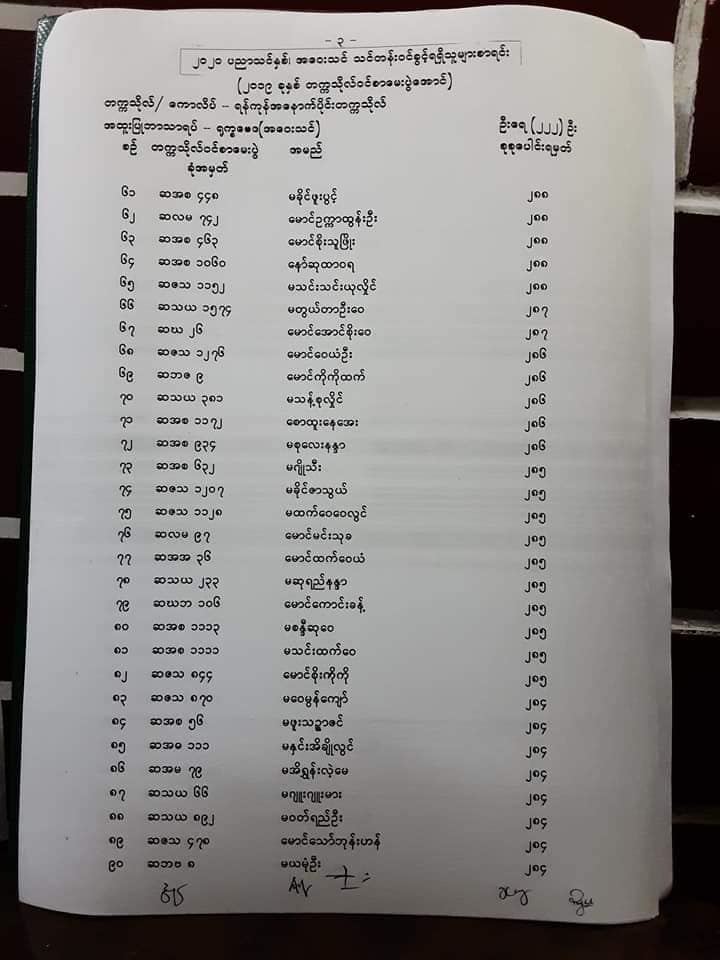 - ၃ -
၂၀၂၀ ပညာသင်နှစ်၊ အဝေးသင် သင်တန်းဝင်ခွင့်ရရှိသူများစာရင်း
(၂၀၁၉ ခုနှစ် တက္ကသိုလ်ဝင်စာမေးပွဲအောင်)
တက္ကသိုလ်/ ကောလိပ် - ရန်ကုန်အနောက်ပိုင်းတက္ကသိုလ်
အထူးပြုဘာသာရပ် - ရုက္ခဗေဒ(အဝေးသင်) ဦးရေ (၂၂၂) ဦး
စဉ် တက္ကသိုလ်ဝင်စာမေးပွဲ အမည် စုစုပေါင်းရမှတ်
ခုံအမှတ်
၆၁ ဆအစ ၄၄၈ မခိုင်ဖူးပွင့် ၂၈၈
၆၂ ဆလမ ၇၄၂ မောင်ဥက္ကာထွန်းဦး ၂၈၈
၆၃ ဆအစ ၄၆၃ မောင်စိုးသူဖြိုး ၂၈၈
၆၄ ဆအစ ၁၀၆၀ နော်ဆုထာဝရ ၂၈၈
၆၅ ဆဇသ ၁၁၅၂ မသင်းသင်းယုလှိုင် ၂၈၈
၆၆ ဆသယ ၁၅၇၄ မတွယ်တာဦးဝေ ၂၈၇
၆၇ ဆဃ ၂၆ မောင်အောင်စိုးဝေ ၂၈၇
၆၈ ဆဇသ ၁၂၇၆ မောင်ဝေယံဦး ၂၈၆
၆၉ ဆဘဇ ၉ မောင်ကိုကိုထက် ၂၈၆
၇၀ ဆသယ ၃၈၁ မသန့်စုလှိုင် ၂၈၆
၇၁ ဆအစ ၁၁၇၂ စောထူးနေအေး ၂၈၆
၇၂ ဆအစ ၉၃၄ မစုလေးနန္ဒာ ၂၈၆
၇၃ ဆအစ ၆၃၂ မဂျိုသီး ၂၈၅
၇၄ ဆဇသ ၁၂၀၇ မခိုင်ဇာသွယ် ၂၈၅
၇၅ ဆဇသ ၁၁၂၈ မထက်ဝေဝေလွင် ၂၈၅
၇၆ ဆလမ ၉၇ မောင်မင်းသုခ ၂၈၅
၇၇ ဆအအ ၃၆ မောင်ထက်ဝေယံ ၂၈၅
၇၈ ဆသယ ၂၃၃ မဆုရည်နန္ဒာ ၂၈၅
၇၉ ဆဃဘ ၁၀၆ မောင်ကောင်းခန့် ၂၈၅
၈၀ ဆအစ ၁၁၁၃ မစန္ဒီဆုဝေ ၂၈၅
၈၁ ဆအစ ၁၁၁၁ မသင်းထက်ဝေ ၂၈၅
၈၂ ဆဇသ ၈၄၄ မောင်စိုးကိုကို ၂၈၅
၈၃ ဆဇသ ၈၇၀ မဝေမွန်ကျော် ၂၈၄
၈၄ ဆအစ ၅၆ မဖူးသဥ္ဇာဇင် ၂၈၄
၈၅ ဆအဓ ၁၁၁ မနှင်းအိချိုလွင် ၂၈၄
၈၆ ဆအမ ၇၉ မအိရွှန်းလဲ့မေ ၂၈၄
၈၇ ဆသယ ၆၆ မဂျူးဂျူးမား ၂၈၄
၈၈ ဆသယ ၈၉၂ မဝတ်ရည်ဦး ၂၈၄
၈၉ ဆဇသ ၄၇၈ မောင်သော်ဘုန်းဟန် ၂၈၄
၉၀ ဆဘဗ ၈ မယမုံဦး ၂၈၄